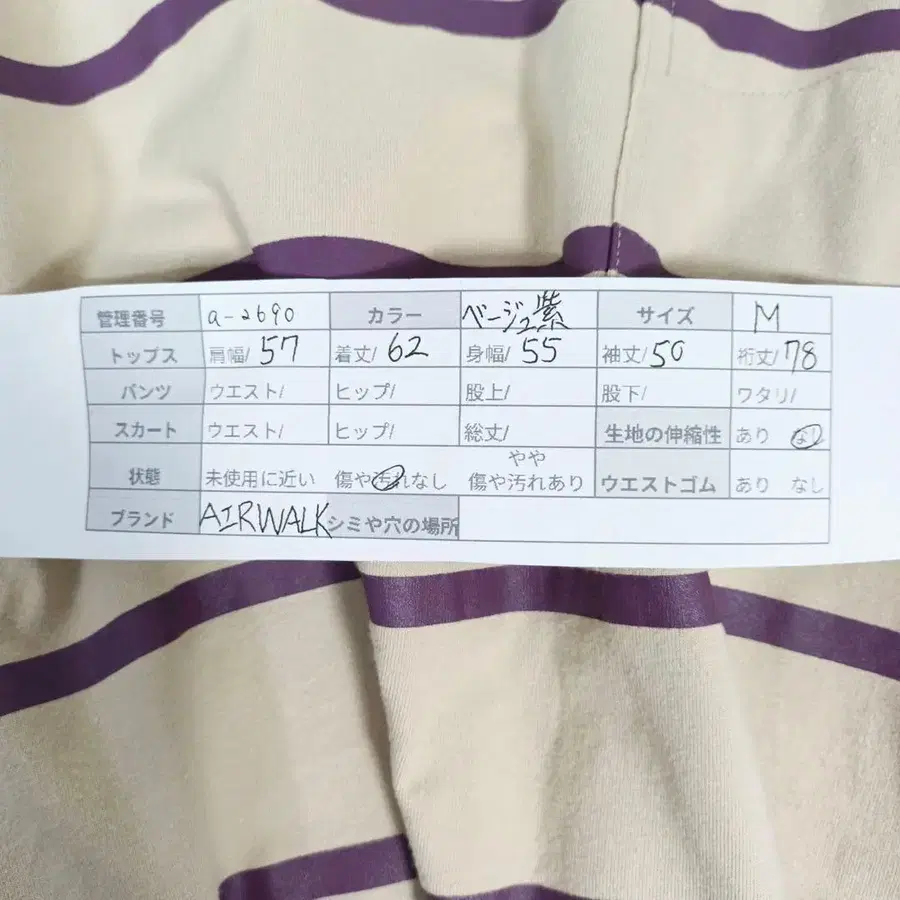 管理番号 a-2690 カラー ベージュ紫 サイズ M
トップス 肩幅/ 57 着丈/ 62 身幅/ 55 袖丈/ 50 裄丈/ 78
パンツ ウエスト/ ヒップ/ 股上/ 股下/ ワタリ/
スカート ウエスト/ ヒップ/ 総丈/ 生地の伸縮性 あり なし
やや
状態 未使用に近い 傷や汚れなし 傷や汚れあり ウエストゴム あり なし
ブランド AIRWALK シミや穴の場所